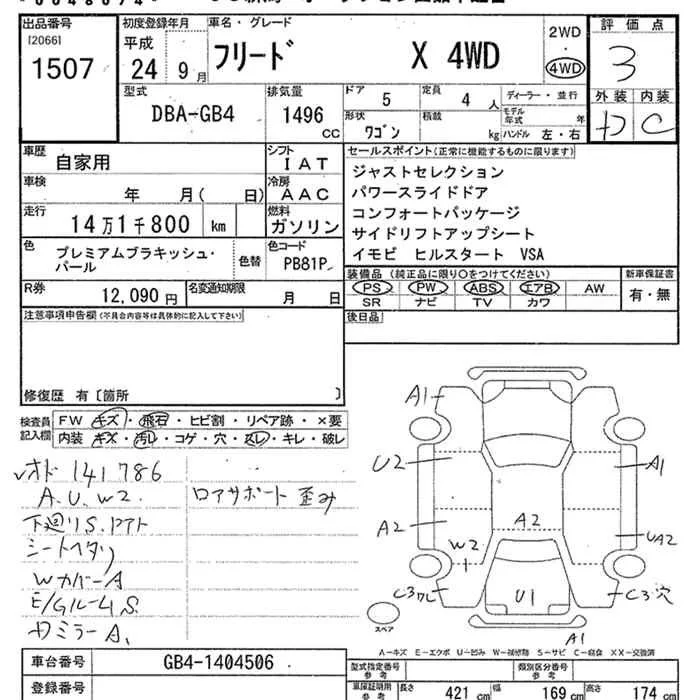 出品番号
[2066]
1507
初度登録年月
平成
24 9月
車名・グレード
フリード X 4WD
2WD
・
4WD
評価点
3
外装 内装
D C
型式
DBA-GB4
排気量
1496
CC
ドア
5
定員
4 人
ディーラー・並行
モデル年式 年
形状
ワゴン
積載
kg
ハンドル 左・右
車歴
自家用
シフト
IAT
車検
年 月( 日)
冷房
AAC
走行
14万1千800 km
燃料
ガソリン
色
プレミアムブラキッシュ・
パール
色替
色コード
PB81P
R券
12,090 円
名変通知期限
月 日
セールスポイント(正常に機能するものに限ります)
ジャストセレクション
パワースライドドア
コンフォートパッケージ
サイドリフトアップシート
イモビ ヒルスタート VSA
装備品 (純正品に限り○をつけてください)
PS PW ABS エアB AW
SR ナビ TV カワ
新車保証書
有・無
後日品
注意事項申告欄(不具合内容等は具体的に記入して下さい)
修復歴 有 [箇所 ]
検査員
記入欄
FW キズ・飛石・ヒビ割・リペア跡・×要
内装 キズ・汚レ・コゲ・穴・スレ・キレ・破レ
オド 141786
A.U.W2.
ロアサポート 歪み
下廻りS.
シートヘタリ
WカバーA
E/GルームS.
ミラーA.
A1
U2
A1
A2
A2
UA2
W2
C3
U1
C3穴
A1
スペア
A-キズ E-エクボ U-凹み W-補修跡 S-サビ C-腐食 XX-交換済
車台番号
GB4-1404506
登録番号
型式指定番号
参考
類別区分番号
参考
車庫証明用
参考
長さ 421 cm
幅 169 cm
高さ 174 cm